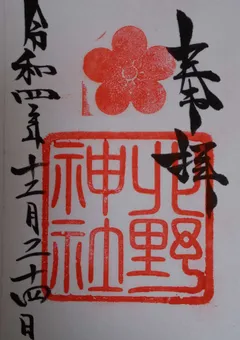 奉拝
北野
神社
令和四年十二月二十四日